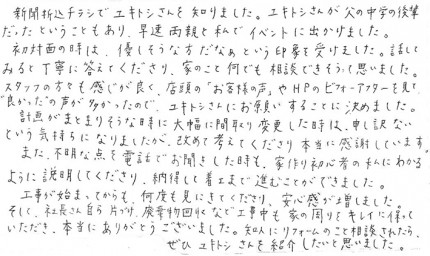 新聞折込チラシでユキトシさんを知りました。ユキトシさんが父の中学の後輩
だったということもあり、早速両親と私でイベントに出かけました。
初対面の時は、優しそうな方だなぁという印象を受けました。話して
みると丁寧に答えてくださり、家のこと何でも相談できそうって思いました。
スタッフの方も感じが良く、店頭の"お客様の声"やHPのビフォーアフターを見て、
"良かった"の声が多かったので、ユキトシさんにお願いすることに決めました。
計画がまとまりそうな時に大幅に間取り変更した時は、申し訳ない
という気持ちになりましたが、改めて考えてくださり本当に感謝しています。
また、不明な点を電話でお聞きした時も、家作り初心者の私にわかる
ように説明してくださり、納得して着工まで進むことができました。
工事が始まってからも、何度も見にきてくださり、安心感が増しました。
そして、社長さん自ら片づけ、廃棄物回収など工事中も家の周りをキレイに保って
いただき、本当にありがとうございました。知人にリフォームのこと相談されたら、
ぜひユキトシさんを紹介したいと思いました。